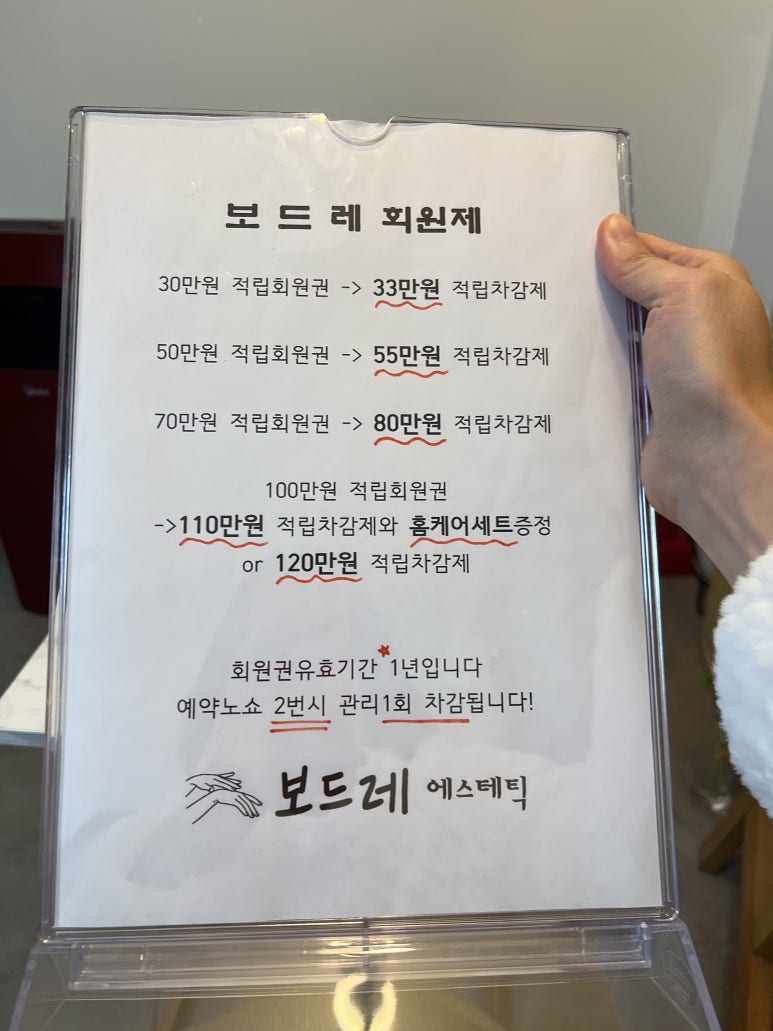 보드레 회원제
30만원 적립회원권 -> 33만원 적립차감제
50만원 적립회원권 -> 55만원 적립차감제
70만원 적립회원권 -> 80만원 적립차감제
100만원 적립회원권
->110만원 적립차감제와 홈케어세트증정
or 120만원 적립차감제
회원권유효기간 1년입니다
예약노쇼 2번시 관리1회 차감됩니다!
보드레 에스테틱